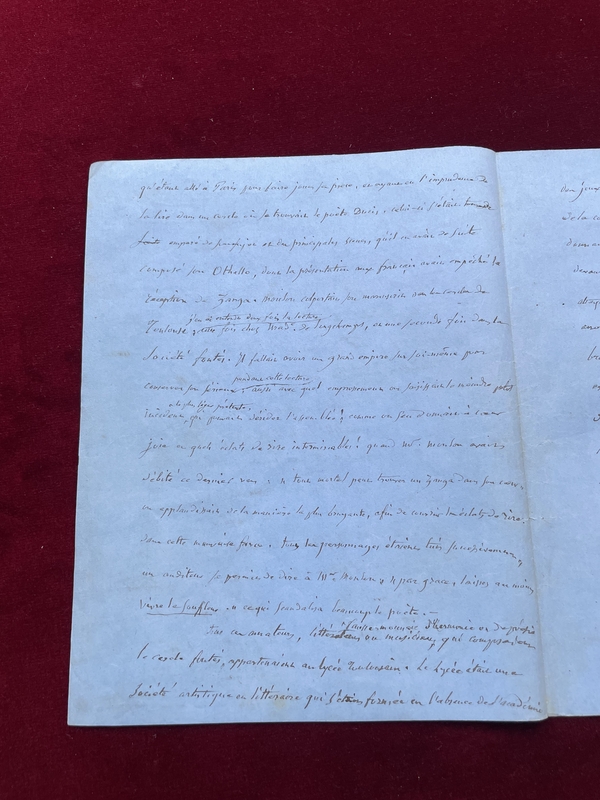 qu'étant allé à Paris pour faire jouer sa pièce, et ayant eu l'imprudence de
la lire dans un cercle où se trouvait le poète Ducis, celui-ci s'était
emparé du sujet et des principales scènes qu'il en avait de suite
composé son Othello, dont la présentation aux français avait empêché la
réception de Zanga. Monsieur colportait son manuscrit dans les cercles de
j'en ai entendu deux fois la lecture
Toulouse, une fois chez Mad. de Longchamps, et une seconde fois dans la
Société Fontès. Il fallait avoir un grand empire sur soi-même pour
pendant cette lecture
conserver son sérieux; aussi avec quel empressement on saisissait le moindre petit
et le plus léger prétexte,
incident, qui pouvait dérider l'assemblée! comme on se donnait à cœur
joie en quels éclats de rire interminables! quand Mr
débité ce dernier vers: « tout mortel peut trouver un Zanga dans son
on applaudissait de la manière la plus bruyante, afin de couvrir les éclats de rire.
dans cette mauvaise farce, tous les personnages étaient tués successivement,
un auditeur se permit de dire à Mr « par grâce, laissez au moins
vivre le souffleur » ce qui scandalisa beaucoup le poète. —
fausse-monnaie d'harmonie ou de poésie
Tous ces amateurs, ou musiciens, qui composaient
le cercle Fontès, appartenaient au lycée Toulousain. Le Lycée était une
Société artistique et littéraire qui s'était formée en l'absence de l'académie